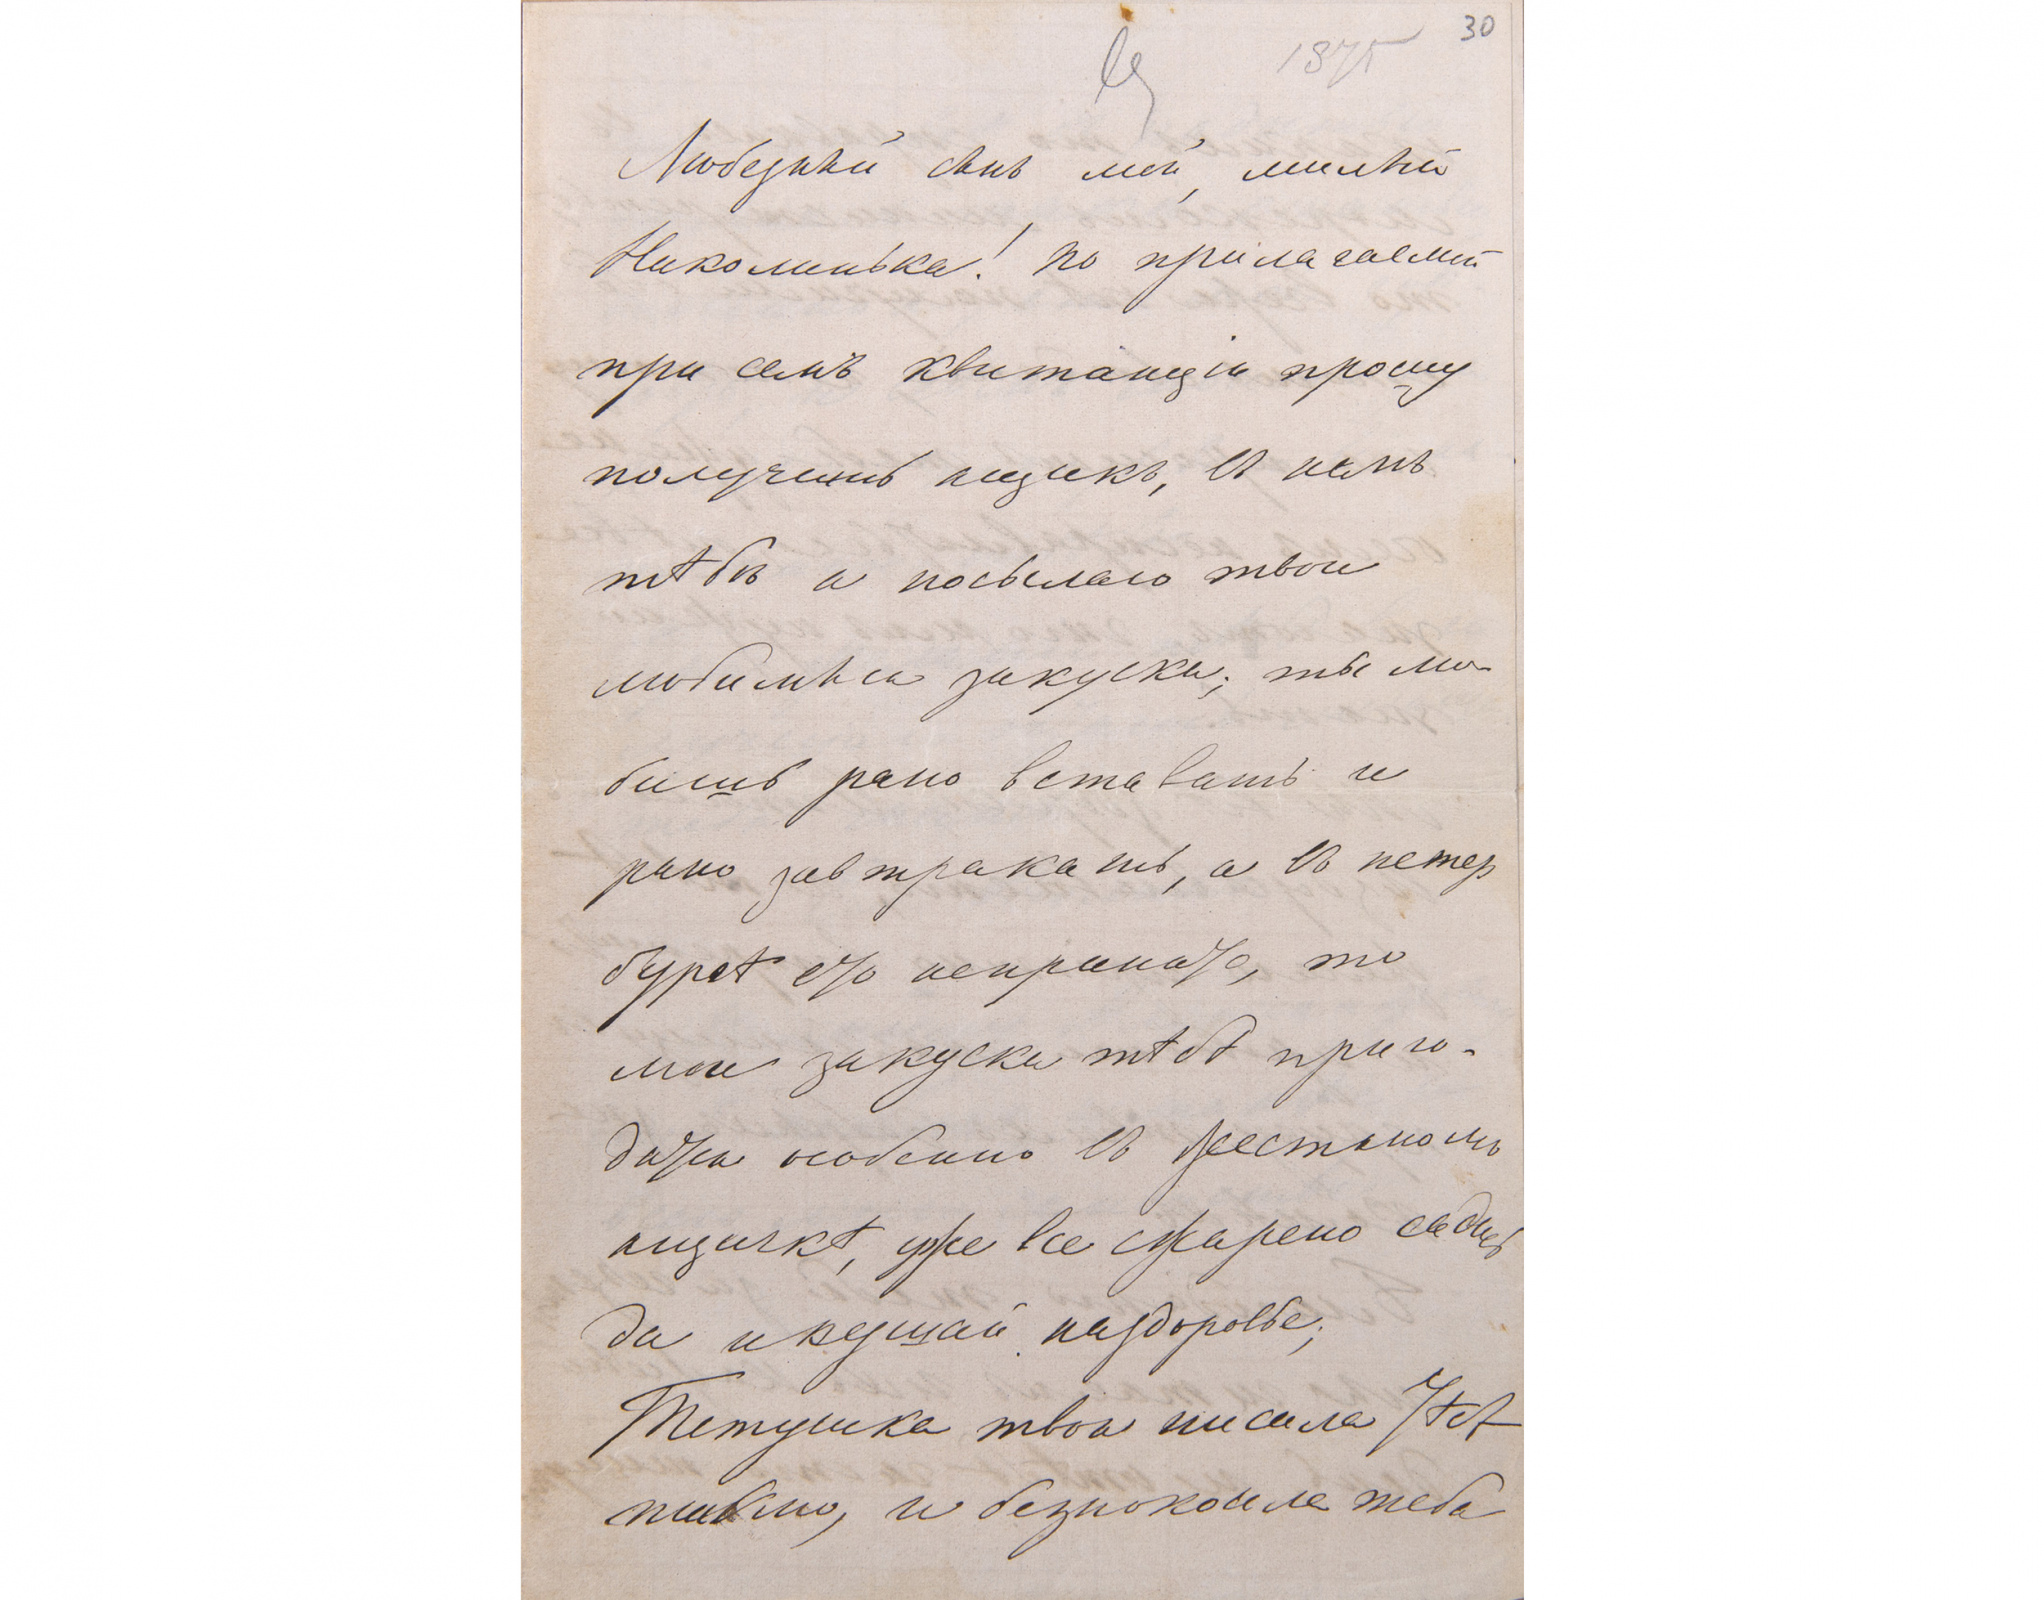 30
1875
Любезный сынъ мой, милый
Николинька! по прилагаемой
при семъ квитанціи прошу
получить ящикъ, въ немъ
тѣбѣ я посылаю твои
любимыя закуски; ты лю-
бишь рано вставать и
рано завтракать, а въ петер
бургѣ это непринято, то
мои закуски тѣбѣ приго-
дятся особенно въ жестяномъ
ящичкѣ, уже все сжарено садись
да и кушай наздоровье;
Тетушка твоя писала тѣбѣ
письмо, и безпокоила тебя